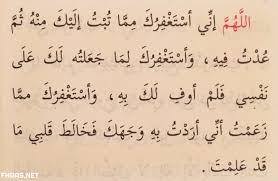 اللَّهُمَّ إِنِّي أَسْتَغْفِرُكَ مِمَّا تُبْتُ إِلَيْكَ مِنْهُ ثُمَّ
عُدْتُ فِيهِ ، وَأَسْتَغْفِرُكَ لِمَا جَعَلْتُه لَكَ عَلَى
نَفْسِي فَلَمْ أُوفِ لَكَ بِهِ ، وَأَسْتَغْفِرُكَ مِمَّا
زَعَمْتُ أَنِّي أَرَدْتُ بِهِ وَجْهَكَ فَخَالَطَ قَلْبِي مَا
قَدْ عَلِمْتَ .
FHRAS.NET